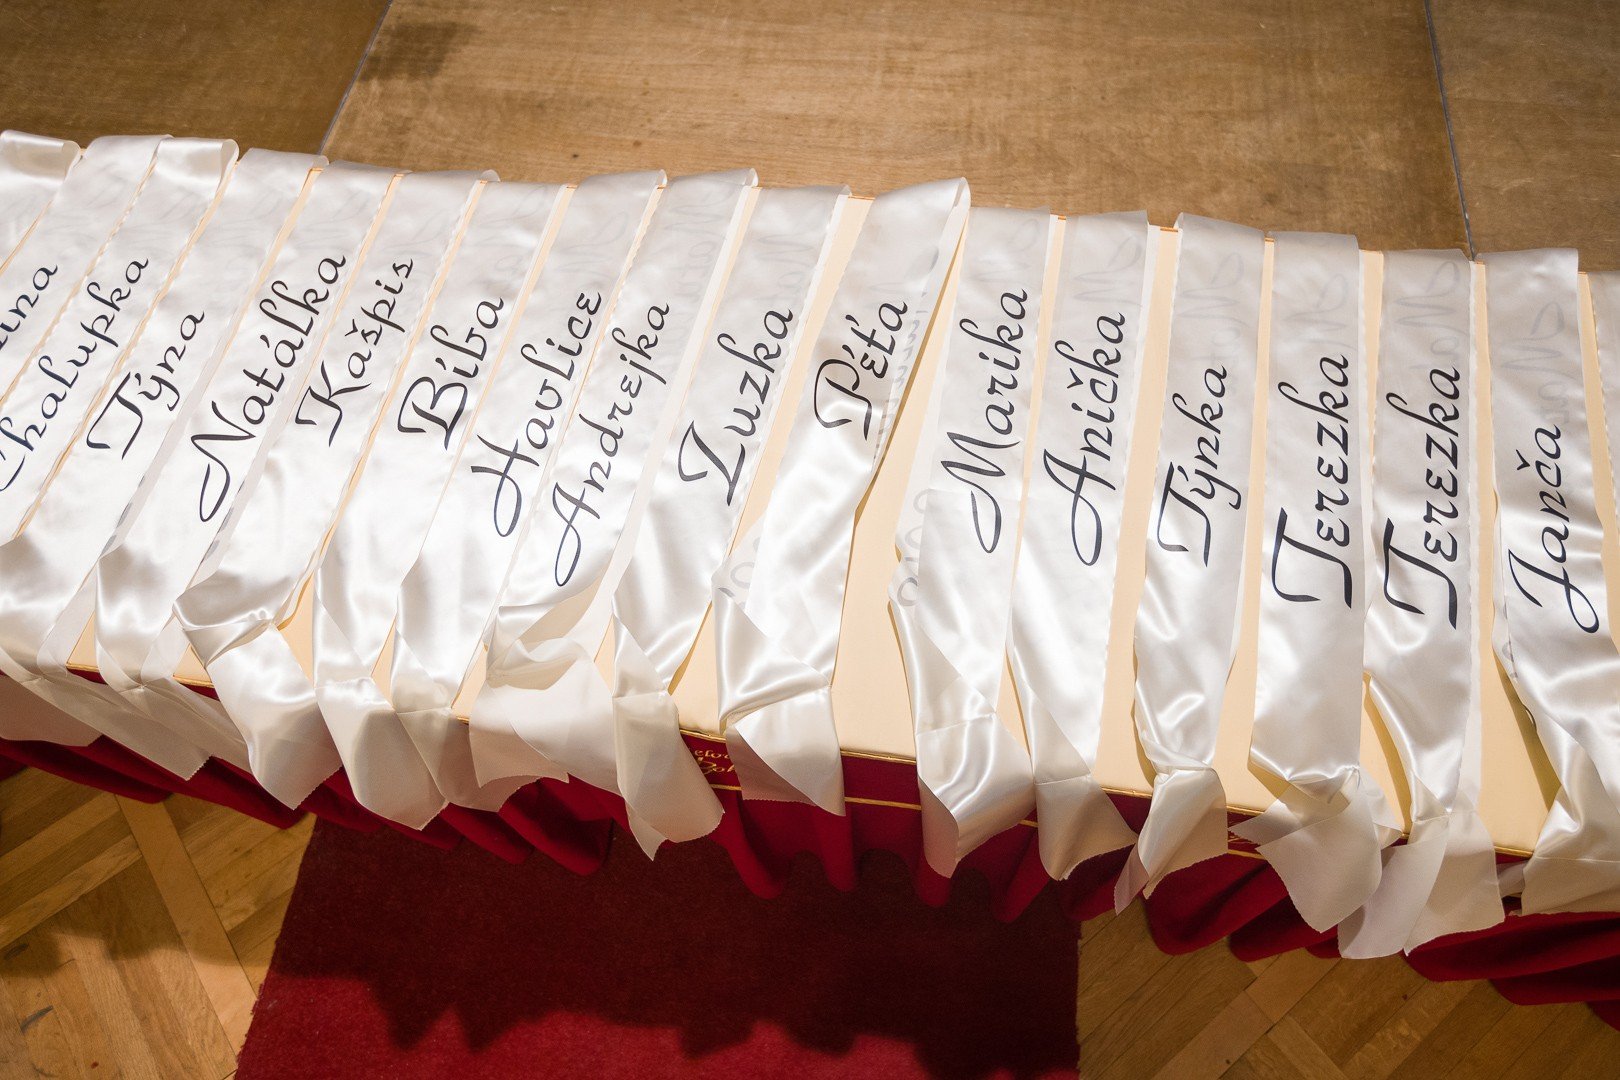 Chalupka
Týna
Natálka
Kašpis
Bíba
Havlice
Andrejka
Zuzka
Péťa
Marika
Anička
Týnka
Terezka
Terezka
Janča